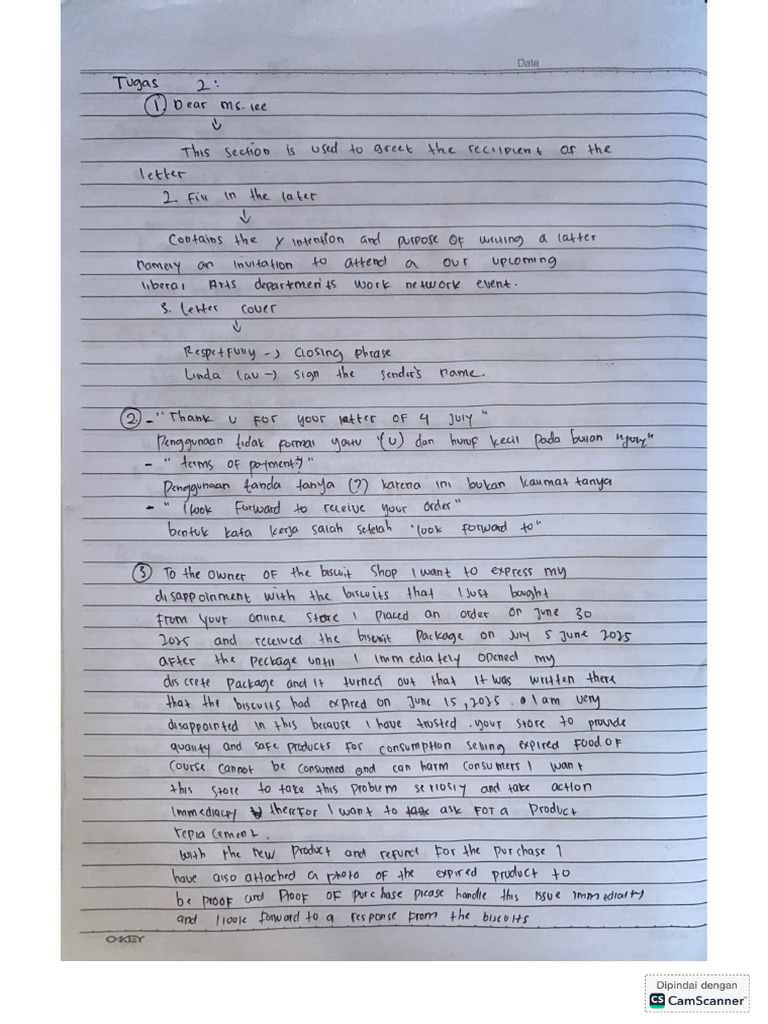 Date
Tugas 2:
① Dear Ms. lee
↓
This section is used to greet the reciipient of the
letter
2. Fill in the later
↓
Contains the intention and purpose of writing a latter
namely an invitation to attend a our upcoming
liberal Arts departments work network event.
3. letter cover
↓
Respetfully -> closing phrase
Linda lau -> sign the sender's name.
② - "Thank u for your latter of 4 july"
Penggunaan tidak formal yaitu "(u) dan huruf kecil pada bulan "july"
- "terms of payment?"
Penggunaan tanda tanya (?) karena ini bukan kalimat tanya
- "I look Forward to receive your order"
bentuk kata kerja salah setelah "look forward to"
③ To the owner of the biscuit shop I want to express my
disappoinment with the biscuits that I just bought
from your online store I placed an order on june 30
2025 and received the biscuit package on july 5 june 2025
after the peckage until I immediately opened my
discrete package and it turned out that it was written there
that the biscuits had expired on June 15, 2025. I am very
disappointed in this because I have trusted your store to provide
quality and safe products for consumption selling expired food of
course cannot be consumed and can harm consumers I want
this store to take this problem seriosly and take action
immediacly therefor I want to ask for a product
replacement.
with the new product and refund for the purchase I
have also attached a photo of the expired product to
be proof and Proof of purchase please handle this issue immediatly
and I look forward to a response from the biscuits
OKEY
Dipindai dengan
CS CamScanner